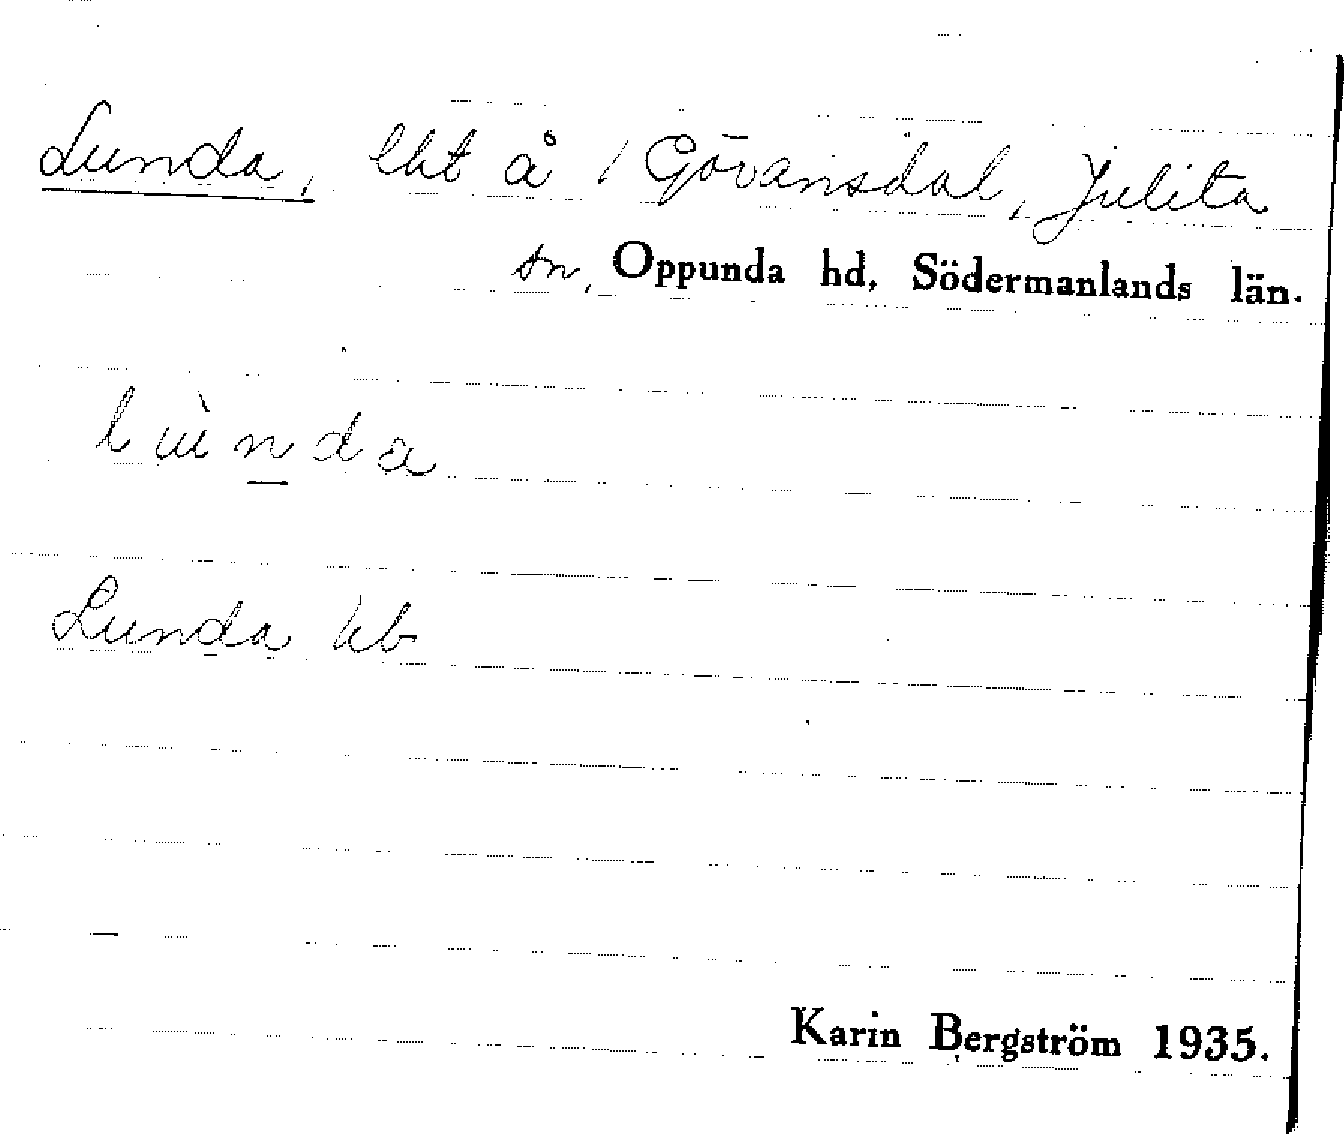 Lunda, lht å 1 Göransdal, Julita
sn, Oppunda hd, Södermanlands län.
lùnda
Lunda kb
Karin Bergström 1935.